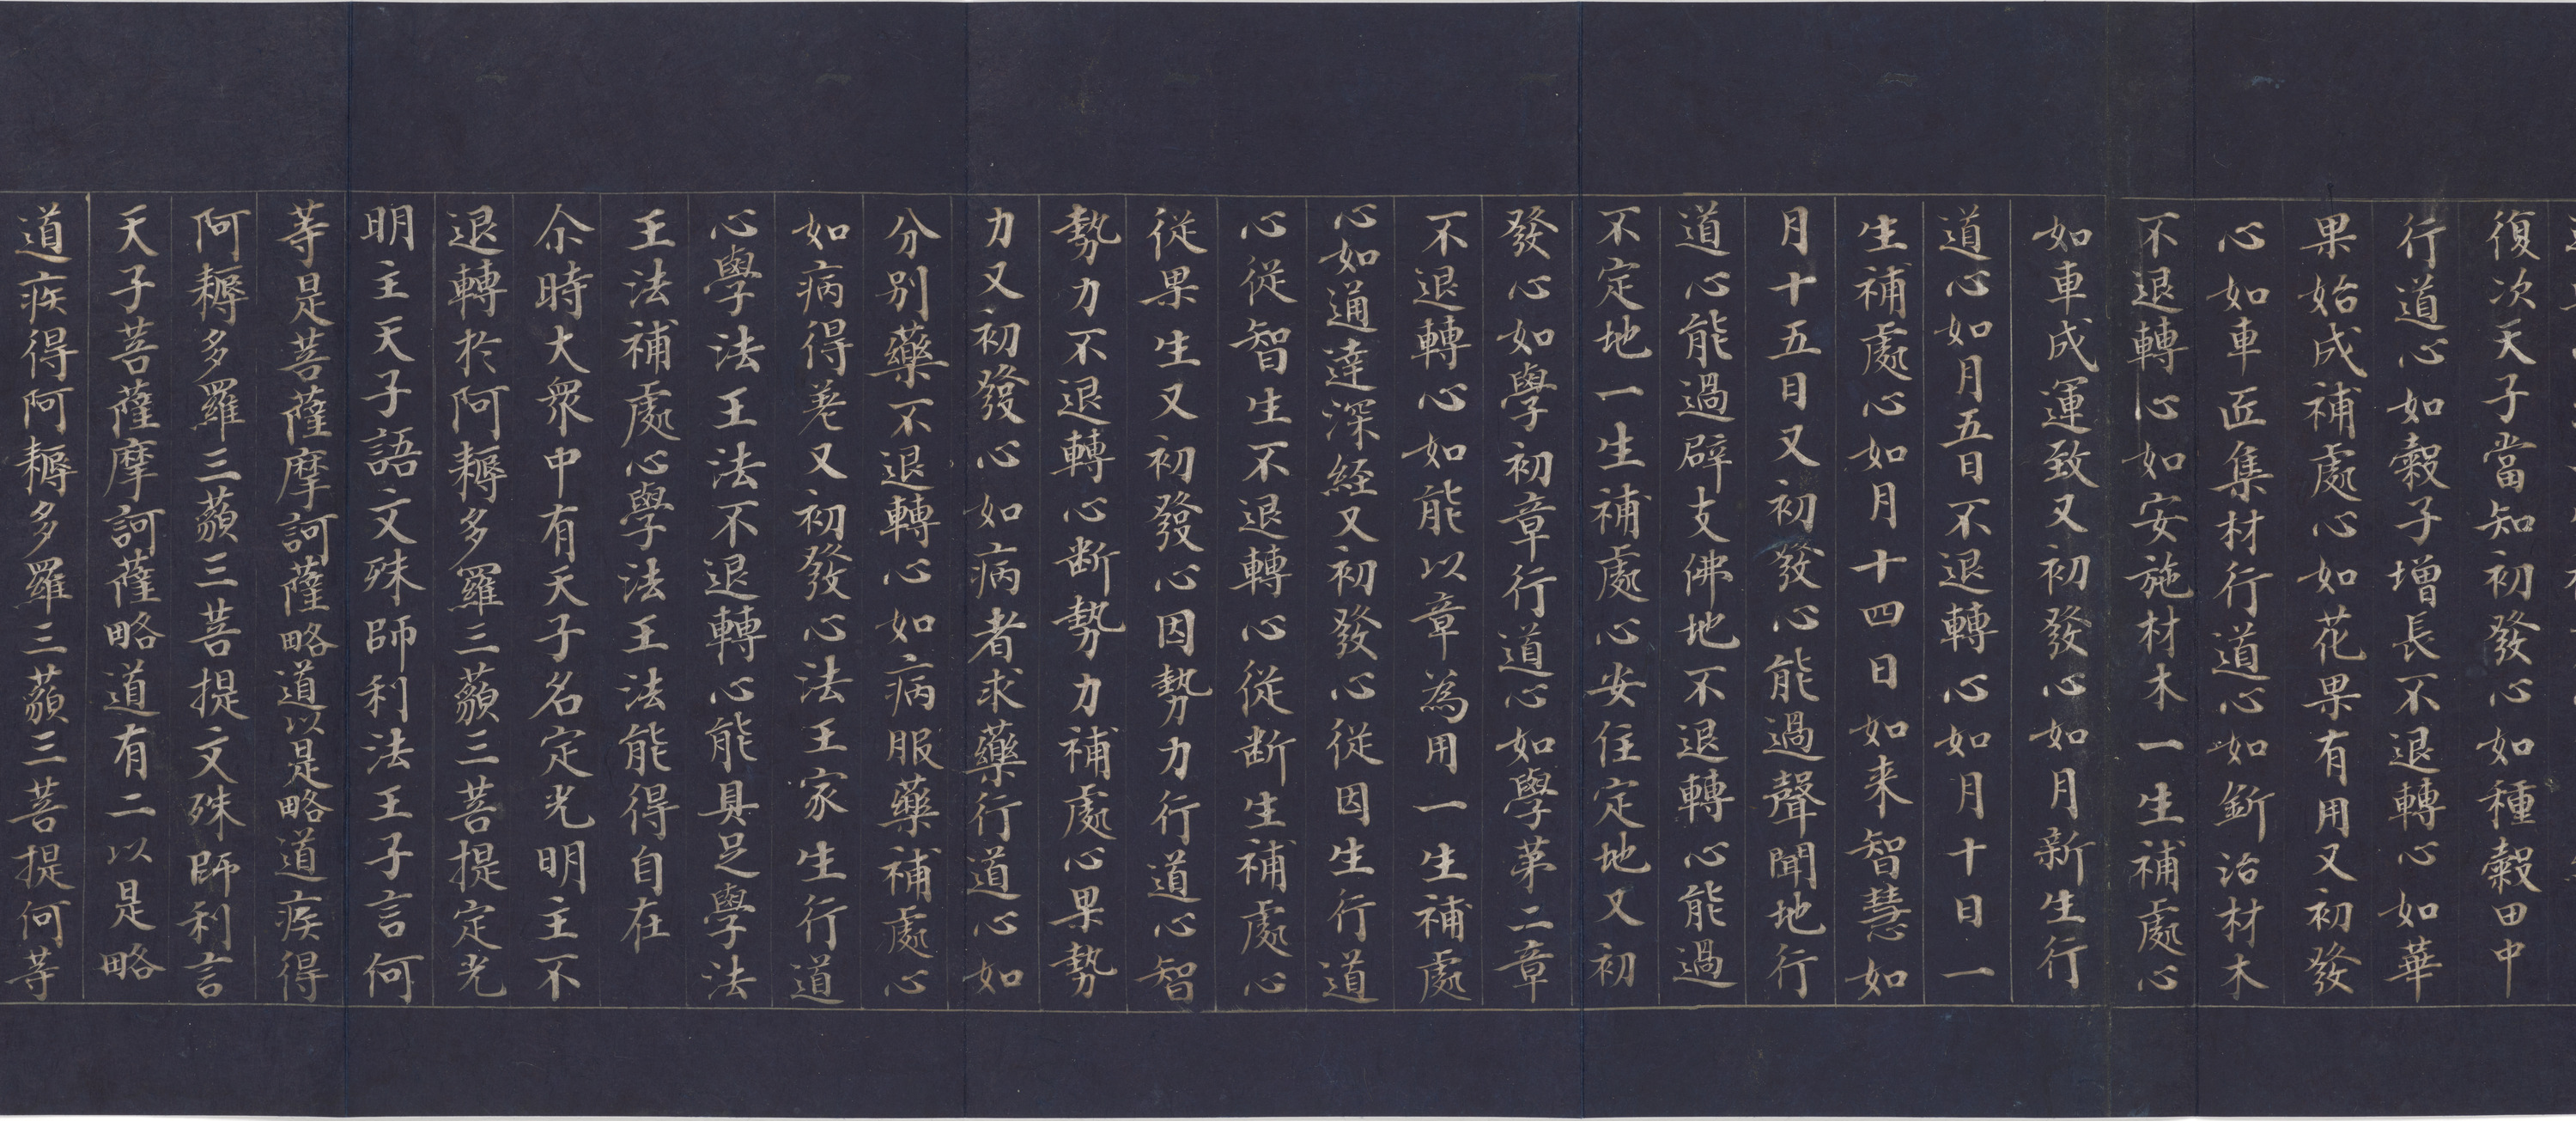 復次天子當知初發心如種穀田中
行道心如穀子增長不退轉心如華
果始成補處心如花果有用又初發
心如車匠集材行道心如斲治材木
不退轉心如安施材木一生補處心
如車成運致又初發心如月新生行
道心如月五日不退轉心如月十日一
生補處心如月十四日如来智慧如
月十五日又初發心能過聲聞地行
道心能過辟支佛地不退轉心能過
不定地一生補處心安住定地又初
發心如學初章行道心如學苐二章
不退轉心如能以章為用一生補處
心如通達深経又初發心從因生行道
心從智生不退轉心從断生補處心
從果生又初發心因勢力行道心智
勢力不退轉心断勢力補處心果勢
力又初發心如病者求藥行道心如
分別藥不退轉心如病服藥補處心
如病得差又初發心法王家生行道
心學法王法不退轉心能具足學法
王法補處心學法王法能得自在
尒時大衆中有天子名定光明主不
退轉於阿耨多羅三藐三菩提定光
明主天子語文殊師利法王子言何
等是菩薩摩訶薩略道以是略道疾得
阿耨多羅三藐三菩提文殊師利言
天子菩薩摩訶薩略道有二以是略
道疾得阿耨多羅三藐三菩提何等